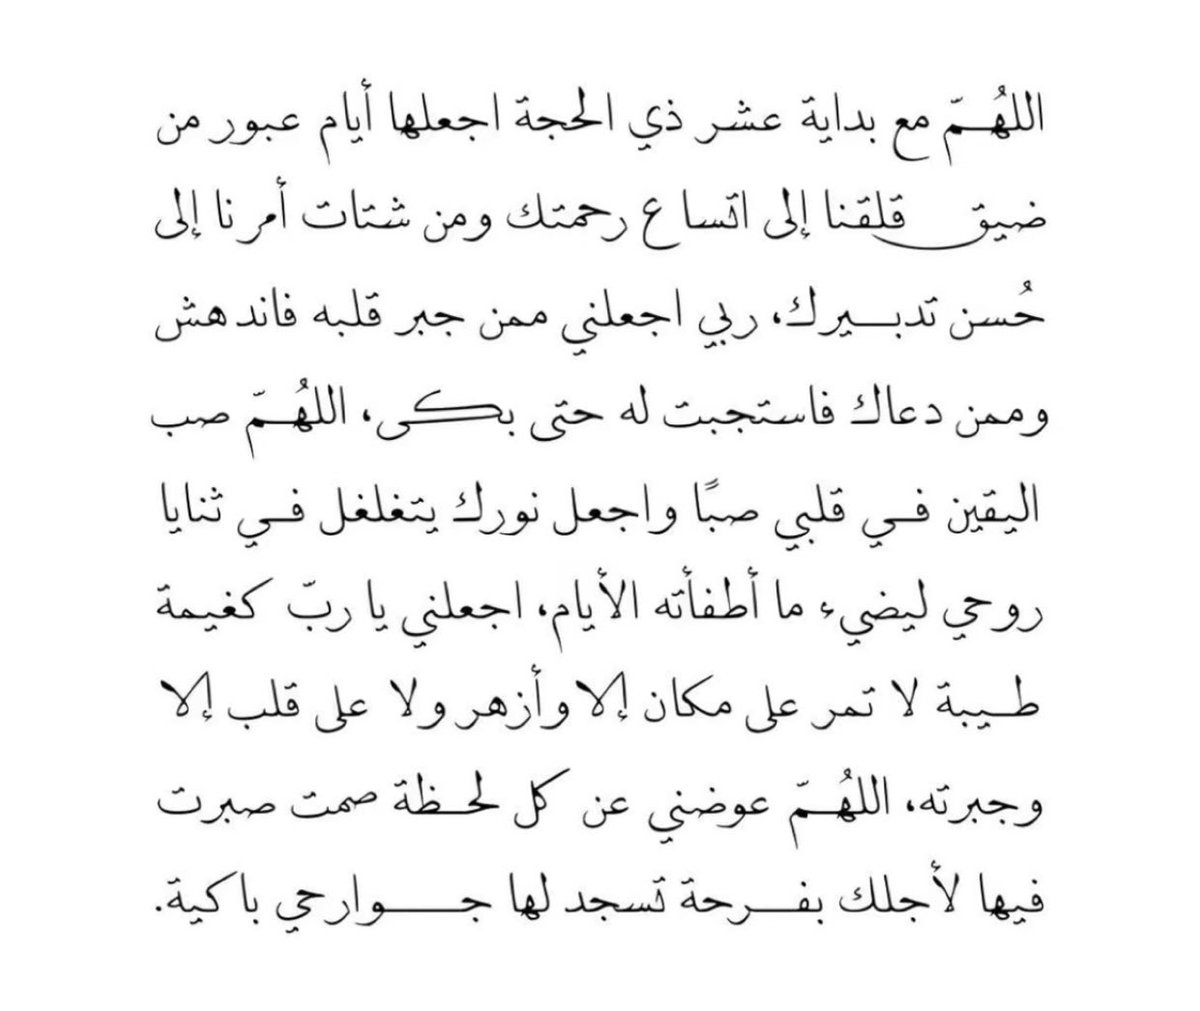 اللهُـمّ مع بداية عشر ذي الحجة اجعلها أيام عبور من
ضيق قلقنا إلى اتساع رحمتك ومن شتات أمرنا إلى
حُسن تدبـــيرك، ربي اجعلني ممن جبر قلبه فاندهش
وممن دعاك فاستجبت له حتى بكـــى، اللهُـمّ صب
اليقين فـي قلبي صبًا واجعل نورك يتغلغل فـي ثنايا
روحي ليضيء ما أطفأته الأيام، اجعلني يا ربّ كغيمة
طـيبة لا تمر على مكان إلا وأزهر ولا على قلب إلا
وجبرته، اللهُـمّ عوضني عن كل لحـظة صمت صبرت
فيها لأجلك بفـــرحة تسجد لها جـــــوارحي باكية.